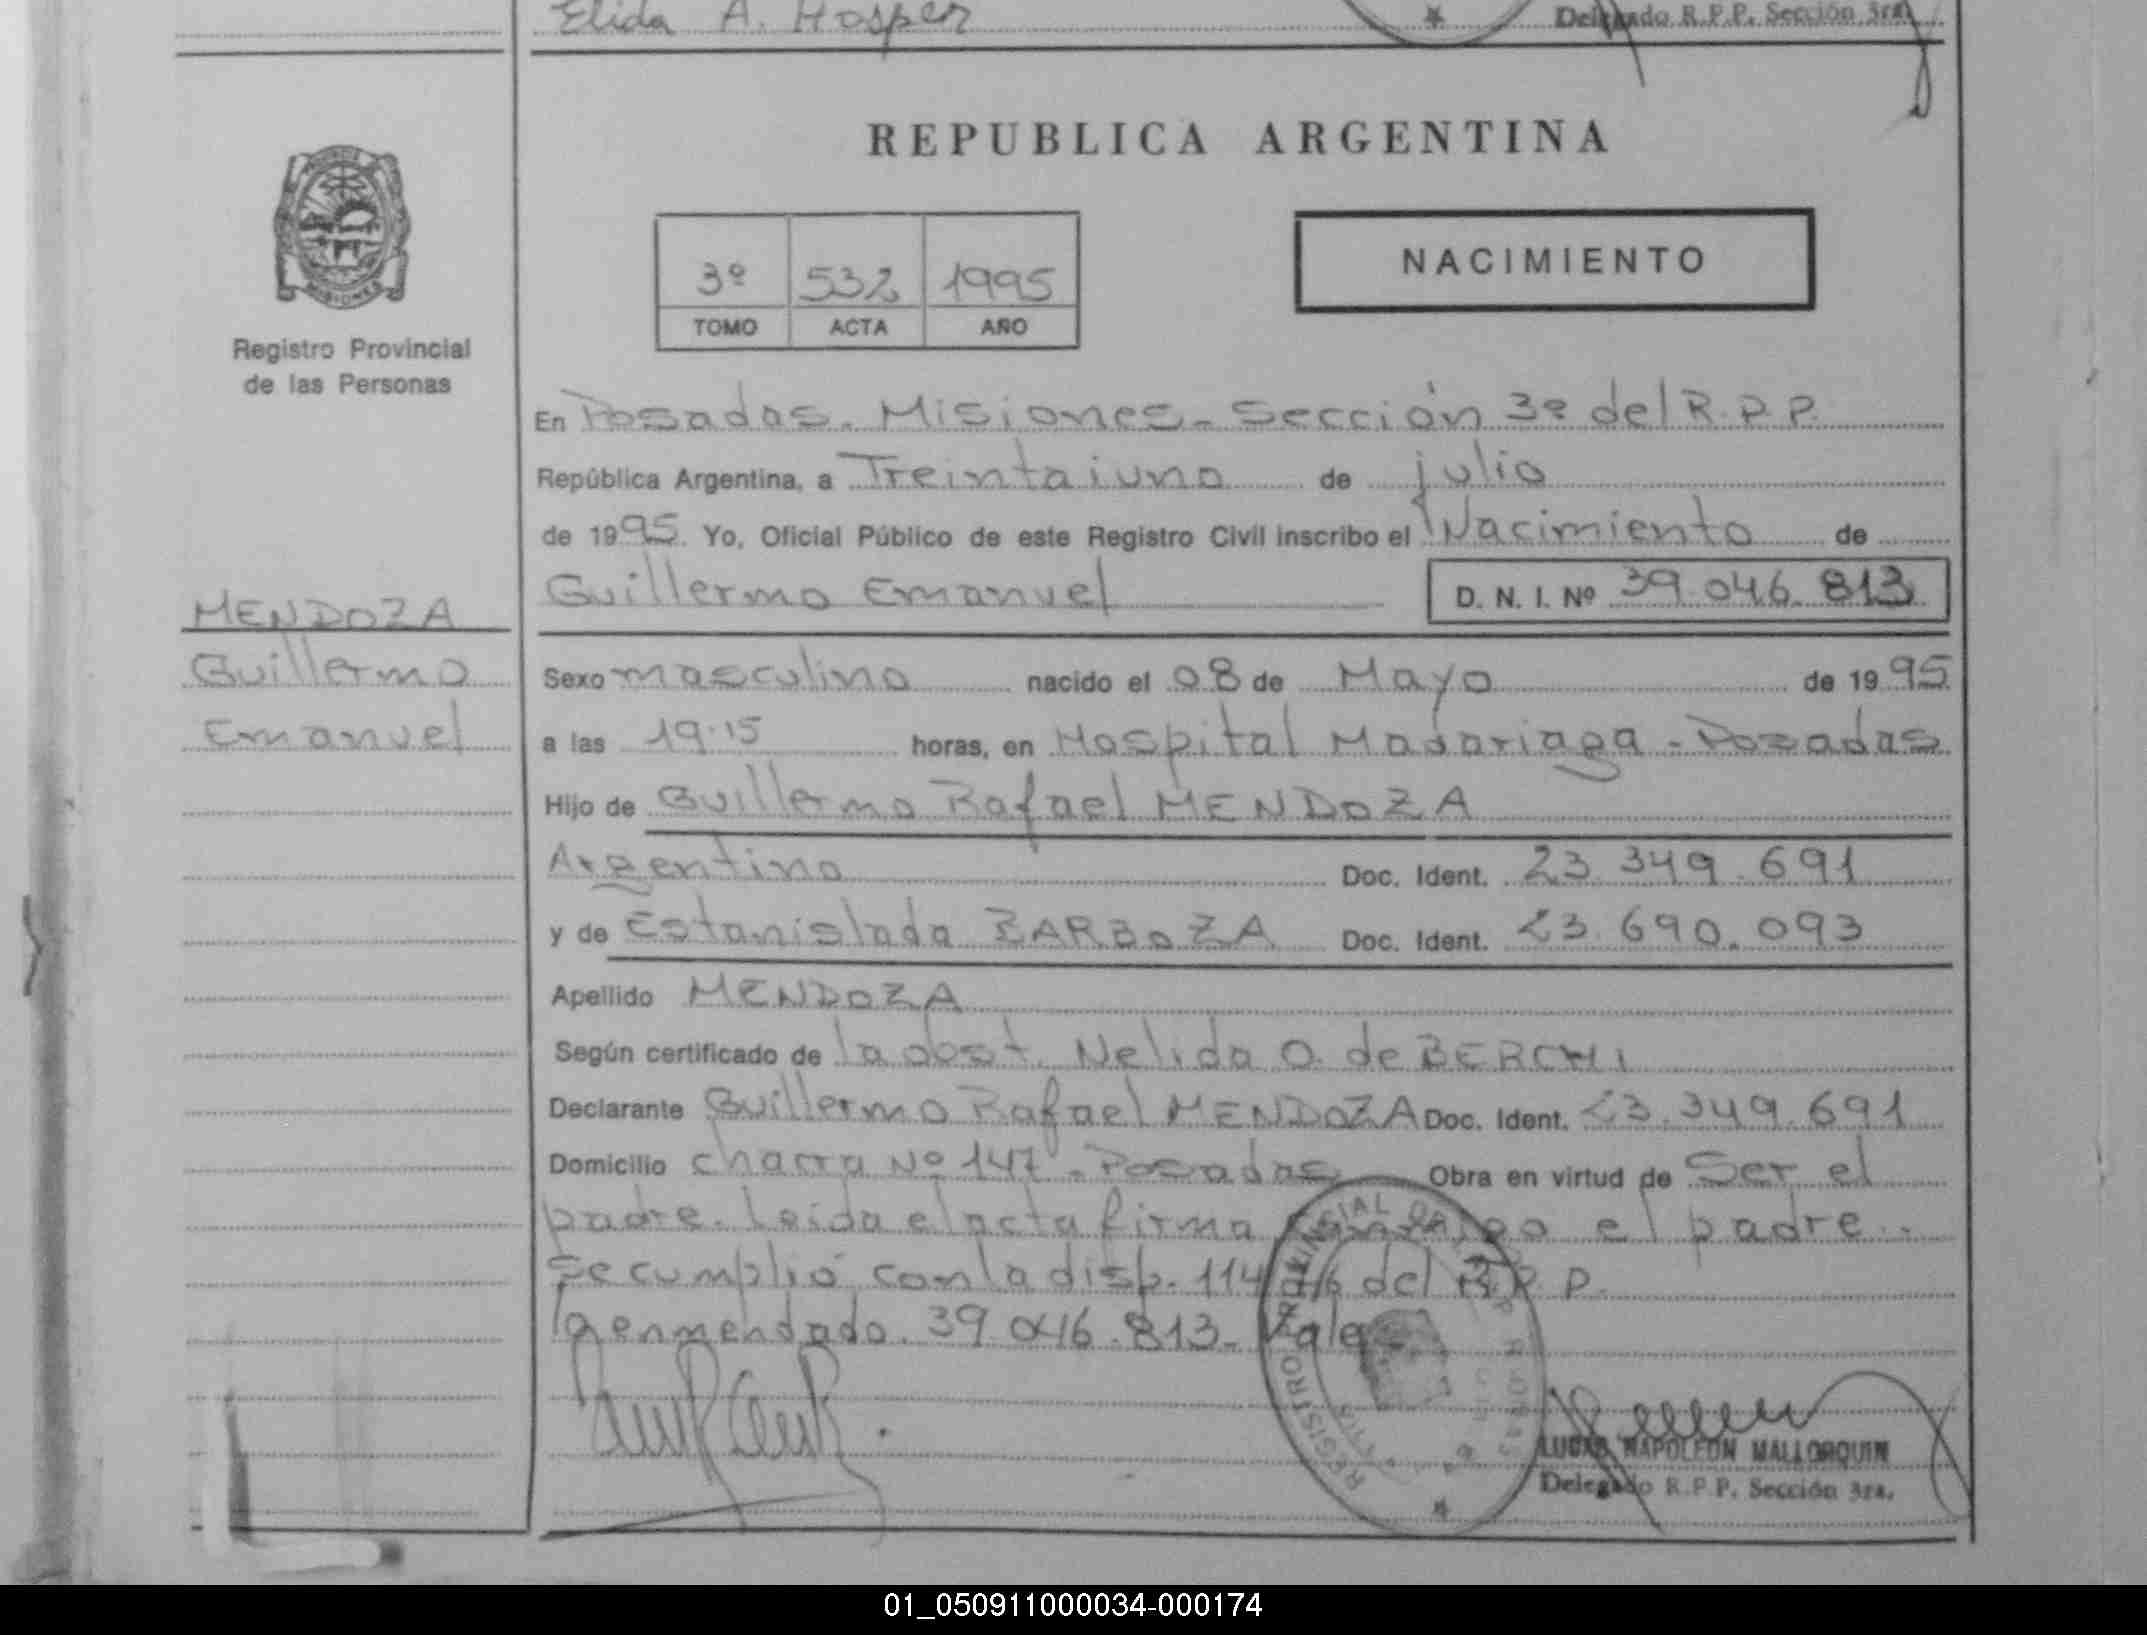 Elida A. Hosper
Delegado R.P.P. Sección 3ra.
MISIONES
Registro Provincial
de las Personas
REPUBLICA ARGENTINA
3º 532 1995
TOMO ACTA AÑO
NACIMIENTO
En Posadas. Misiones - Sección 3º del R.P.P.
República Argentina, a Treintaiuno de julio
de 1995. Yo, Oficial Público de este Registro Civil inscribo el Nacimiento de
Guillermo Emanuel D. N. I. Nº 39.046.813
MENDOZA
Guillermo
Emanuel
Sexo masculino nacido el 08 de Mayo de 1995
a las 19.15 horas, en Hospital Madariaga - Posadas
Hijo de Guillermo Rafael MENDOZA
Argentino Doc. Ident. 23.349.691
y de Estanislada BARBOZA Doc. Ident. 23.690.093
Apellido MENDOZA
Según certificado de la obst. Nelida O. de BERCHI
Declarante Guillermo Rafael MENDOZA Doc. Ident. 23.349.691
Domicilio chacra Nº 147 - Posadas Obra en virtud de Ser el
padre. Leida el acta firma conmigo el padre.
Se cumplió con la disp. 114/ del R.P.P.
lo enmendado. 39.046.813 - Vale
REGISTRO PROVINCIAL DE
LUCAS NAPOLEON MALLORQUIN
Delegado R.P.P. Sección 3ra.
01_050911000034-000174